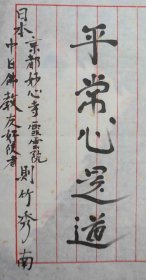 平常心是道
日本
京都妙心寺靈雲院
中日佛教友好使者
則竹秀南